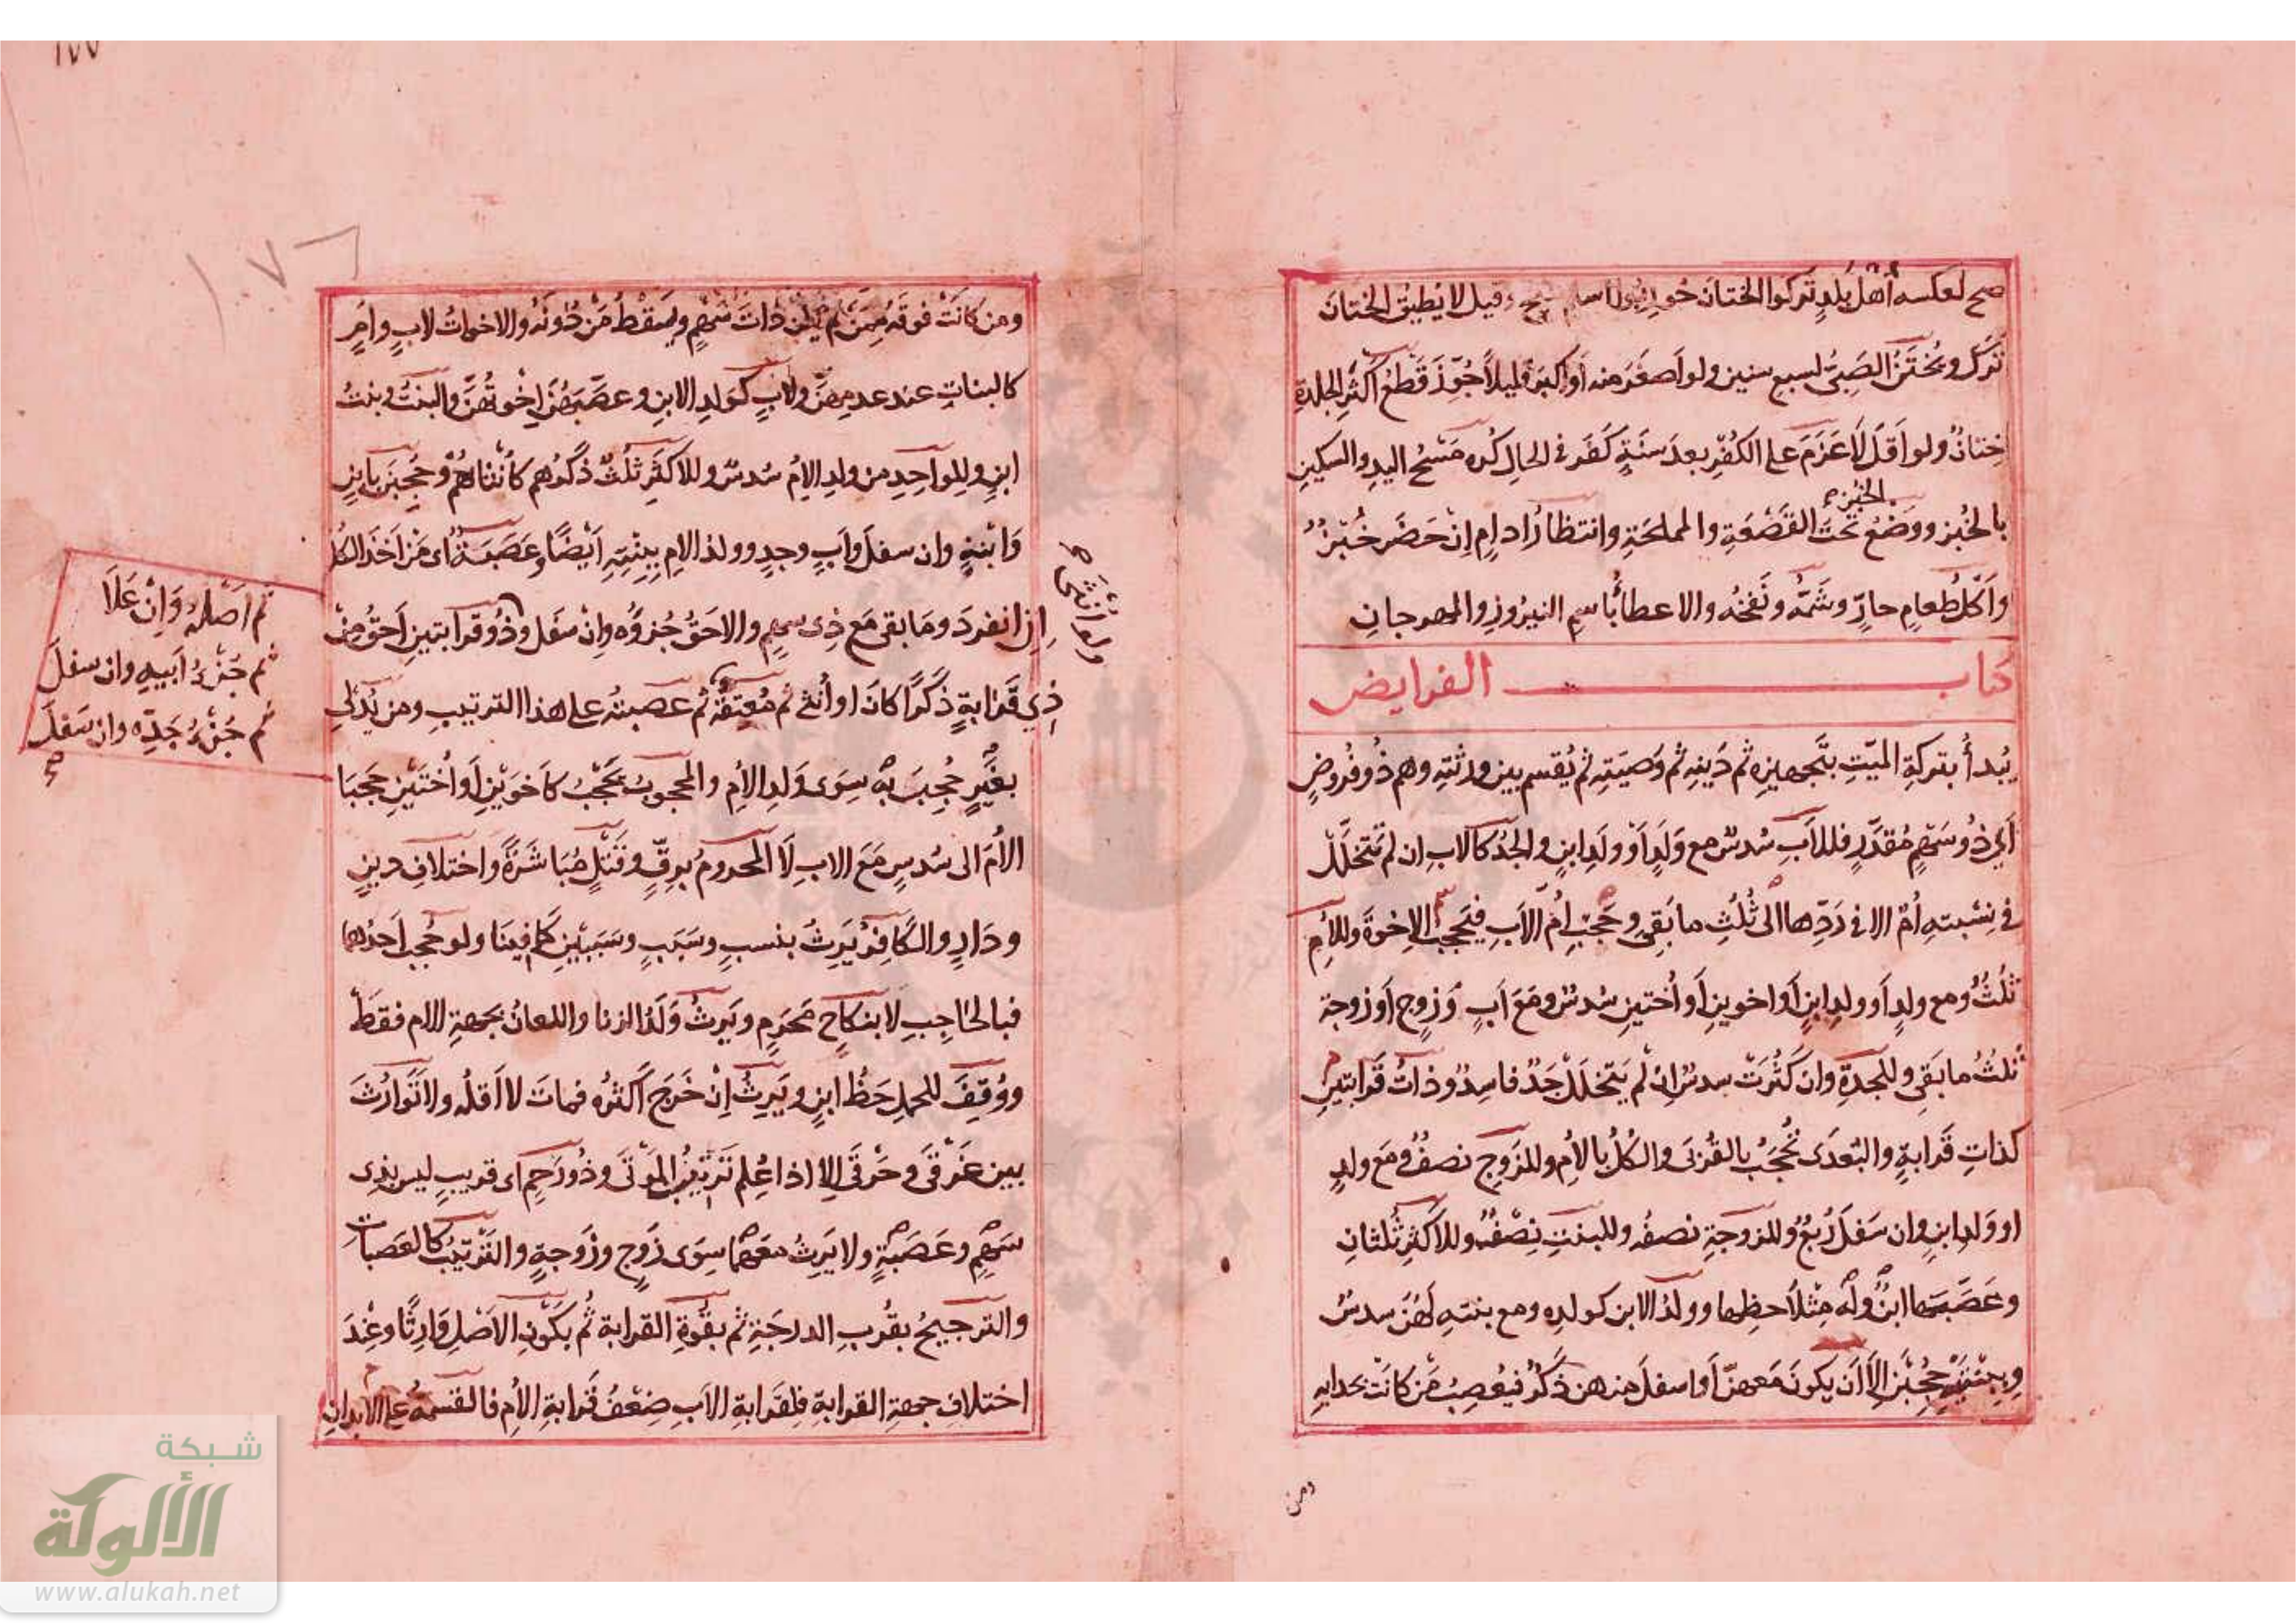 صح لعكسه أهل بلدٍ تركوا الختان حوربوا اسلم شيخ وقيل لا يُطيق الختان
تُرك ويُختن الصبيّ لسبع سنين ولو اصغر منه أو أكبر قليلاً جُوّز قطع أكثر الجلدة
ختانٌ ولو اقل لا عزم على الكفر بعد سنةٍ كفر في الحال كُره مسح اليد والسكين
بالخبز ووضع الخبز تحت القصعة والمملحة وانتظار ادام إن حضر خبز
واكل طعام حارّ وشمّه ونفخه والاعطاء باسم النيروز والمهرجان
كتاب الفرايض
يُبدأ بتركة الميّت بتجهيزه ثم دينه ثم وصيته ثم يُقسم بين ورثته وهم ذو فروض
اي ذو سهم مُقدّر فللأب سُدس مع ولدٍ أو ولد ابنٍ والجدّ كالاب ان لم تتخلّل
في نسبته أمّ الا في ردّها الى ثُلث ما بقي وحجب أمّ الأب فيحجب الاخوة وللأم
ثلثٌ ومع ولدٍ أو ولد ابنٍ أو اخوين أو أختين سُدسٌ ومع أبٍ وزوجٍ أو زوجة
ثلث ما بقي وللجدة وان كثرت سدسٌ ان لم يتخلّل جدّ فاسدٌ وذات قرابتين
كذات قرابةٍ والبُعدى تُحجب بالقُربى والكلّ بالأم وللزوج نصفٌ ومع ولدٍ
او ولد ابنٍ وان سفل ربعٌ وللزوجة نصفه وللبنت نصفٌ وللأكثر ثُلثان
وعصّبها ابنٌ وله مثلا حظها وولد الابن كولده ومع بنته لهنّ سدسٌ
وببنتيه حُجبن الا أن يكون معهنّ أو اسفل منهن ذكرٌ فيعصب من كانت بحذايه
ومن
١٧٧
١٧٦
ومن كانت فوقه ممن لم تكن ذات سهم ويسقط من دونه والاخوات لاب وأم
كالبنات عند عدمهنّ ولاب كولد الابن وعصّبهنّ اخوتهنّ والبنت وبنت
ابنٍ وللواحد من ولد الام سُدسٌ وللاكثر ثلثٌ ذكرهم كانثاهم وحُجبن بابنٍ
وابنه وان سفل وأبٍ وجدٍ وولد الام ببنته أيضًا وعصبةٌ اى من أخذ الكل
إن انفرد وما بقى مع ذى سهم والاحق جزؤه وإن سفل وذو قرابتين أحق من
ذي قرابةٍ ذكرًا كان او أنثى ثم مُعتقه ثم عصبته على هذا الترتيب ومن يُدلي
بغيرٍ حُجب به سوى ولد الأم والمحجوب يحجب كأخوين أو أختين حجبا
الأم الى سُدسٍ مع الاب لا المحروم برقٍّ وقتلٍ مباشرةً واختلاف دينٍ
ودارٍ والكافر يرث بنسبٍ وسببٍ وسببين كما فينا ولو حُجب أحدهما
فبالحاجب لا بنكاح محرمٍ ويرث ولد الزنا واللعان بجهة الام فقط
ووُقف للحمل حظّ ابنٍ ويرث إن خرج أكثره فمات لا أقله ولا توارث
بين غرقى وحرقى الا اذا عُلم ترتيب الموتى وذو رحمٍ اى قريب ليس بذى
سهمٍ وعصبةٍ ولا يرث معهما سوى زوجٍ وزوجةٍ والترتيب كالعصبات
والترجيح بقُرب الدرجة ثم بقوة القرابة ثم بكون الأصل وارثًا وعند
اختلاف جهة القرابة فلقرابة الأب ضعف قرابة الأم فالقسمة على الابدان
ولو انثى صح
ثم اصله وان علا
ثم جزؤ أبيه وان سفل
ثم جزؤ جدّه وان سفل
صح
شبكة
الألوكة
www.alukah.net